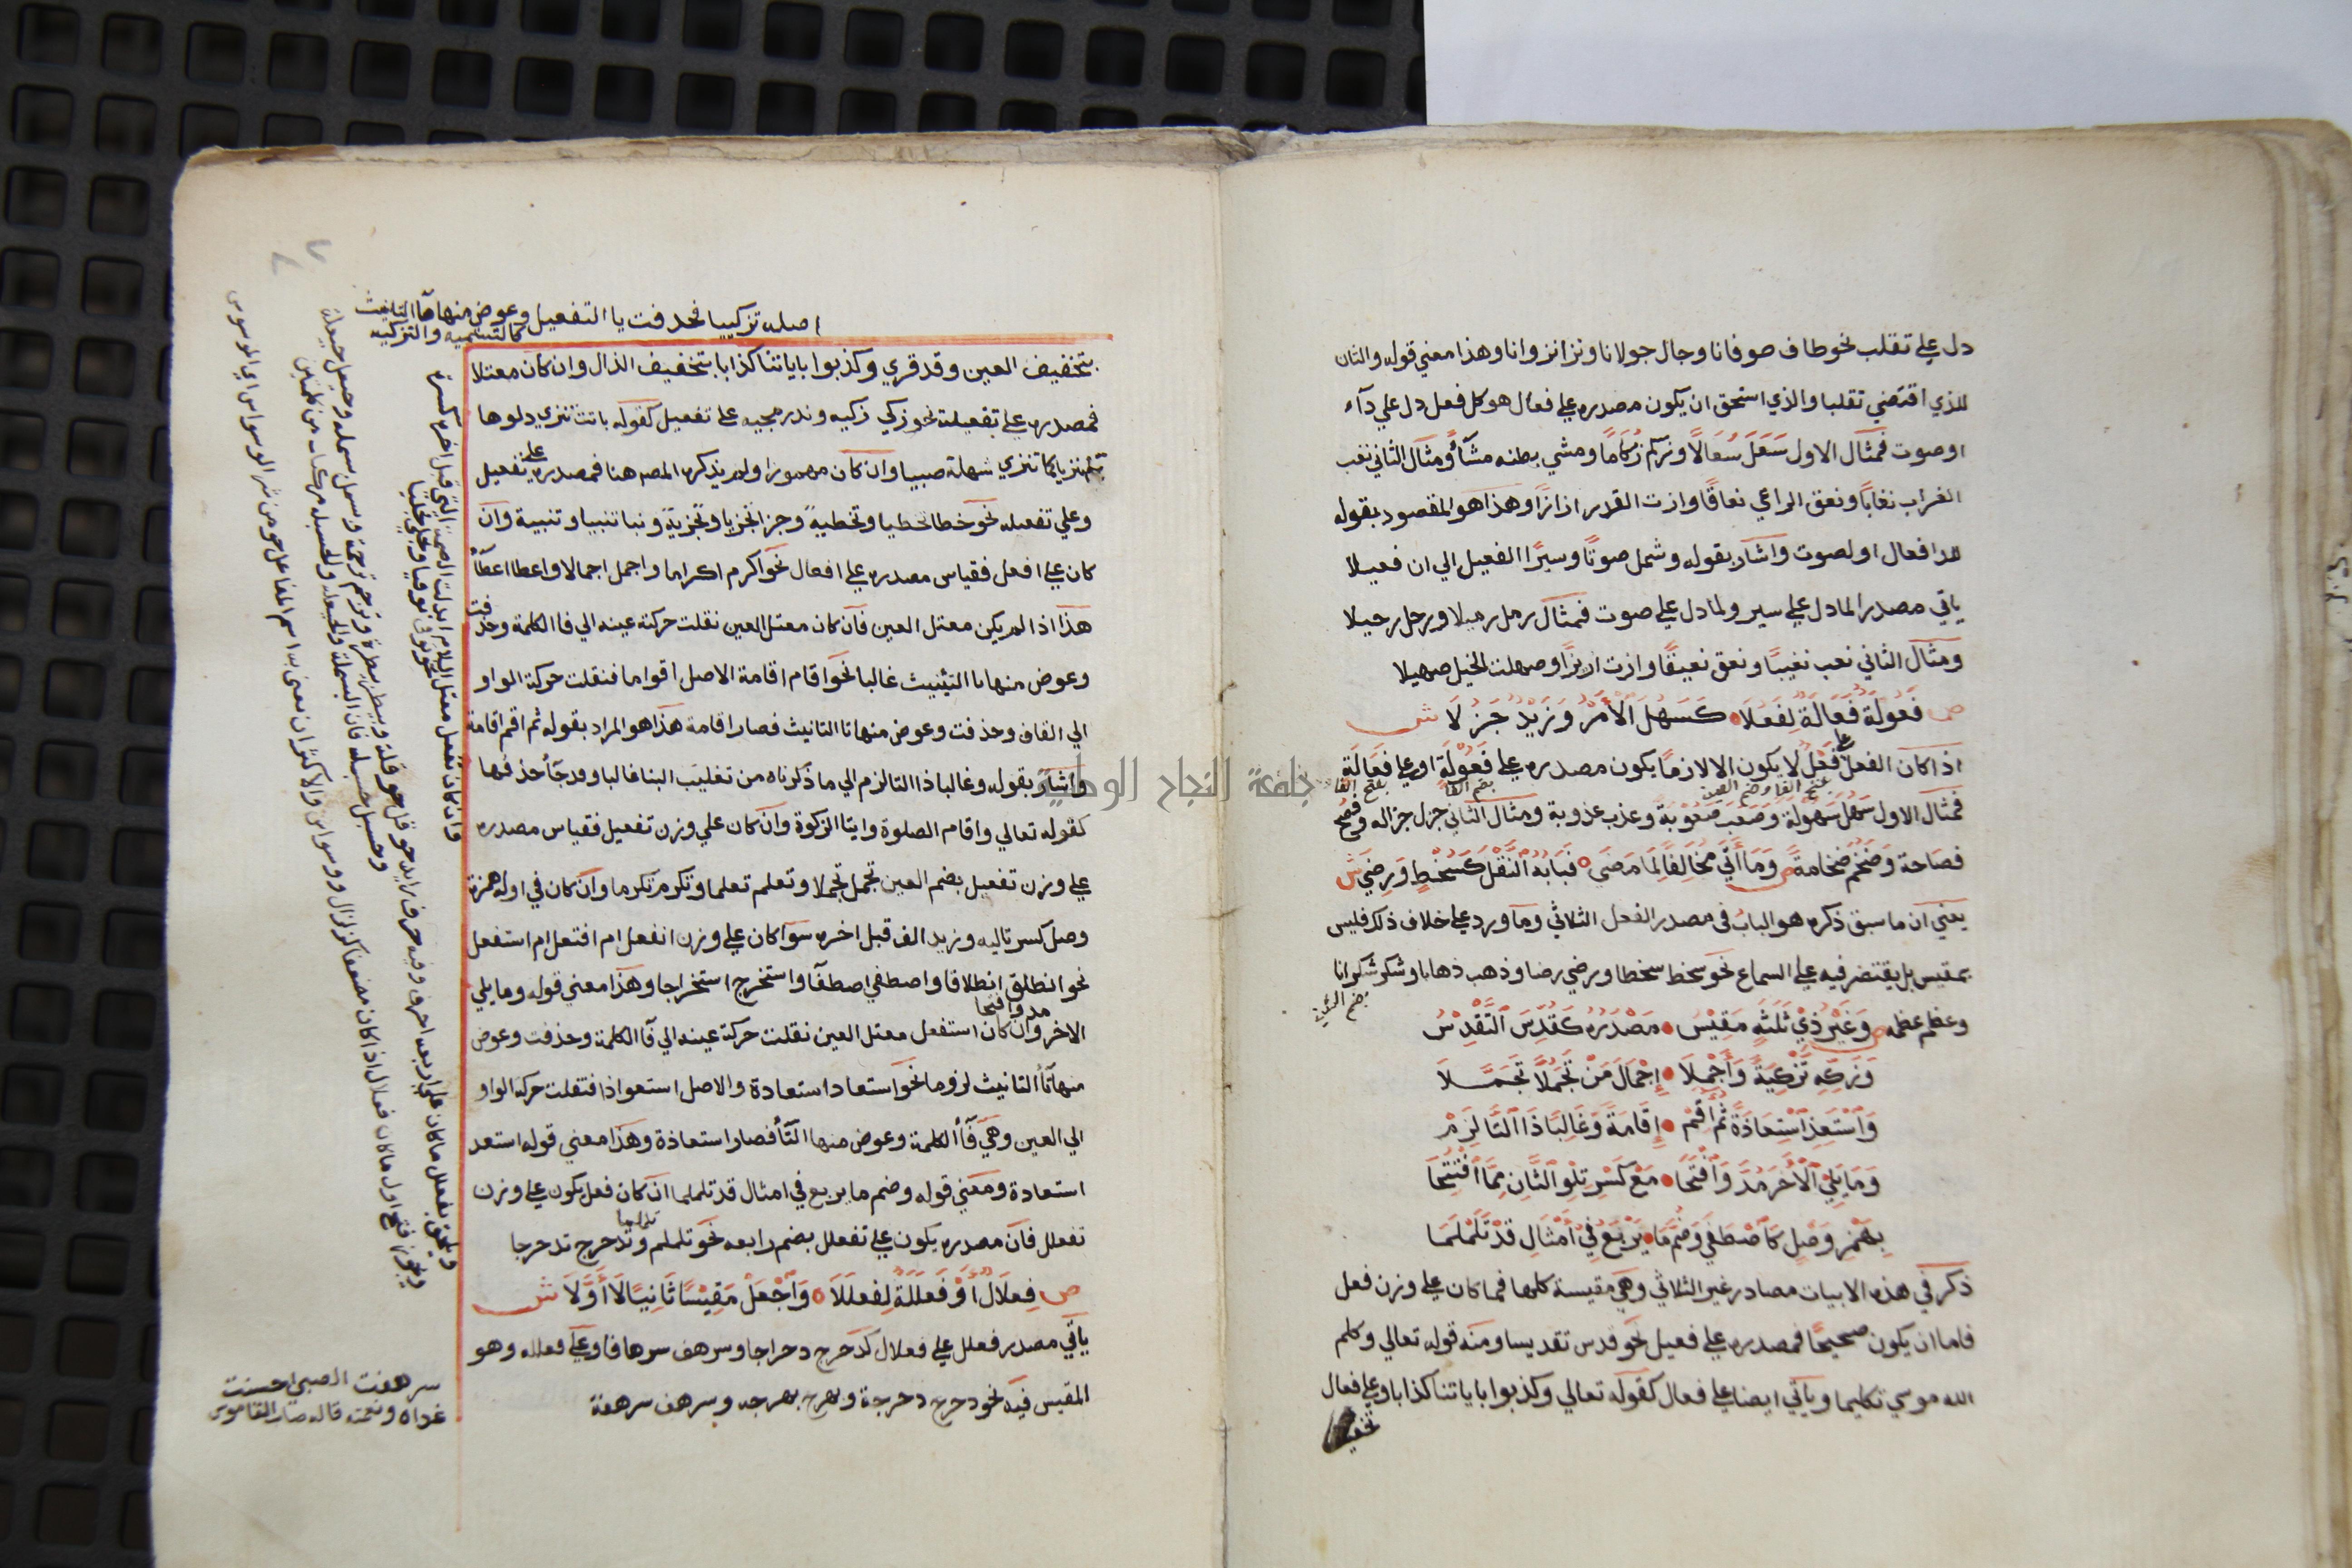 دل علي تقلب نحو طاف صوفانا وجال جولانا ونزا نزوانا وهذا معني قوله والثان
للذي اقتضي تقلبا والذي استحق ان يكون مصدره علي فعال هو كل فعل دل علي دآء
او صوت فمثال الاول سَعَلَ سُعَالًا وزكم زُكَامًا ومشي بطنه مشآءً ومثال الثاني نغب
الغراب نغابًا ونعق الراعي نعاقًا وازت القدر ازازًا وهذا هو المقصود بقوله
للدا فعال او لصوت واشار بقوله وشمل صوتًا وسيرًا الفعيل الي ان فعيلا
ياتي مصدرا لما دل علي سير ولما دل علي صوت فمثال رمل رميلا ورحل رحيلا
ومثال الثاني نعب نغيبًا ونعق نعيقًا وازت ازيزًا وصهلت الخيل صهيلا
ص فَعُولَةٌ فَعَالَةٌ لِفَعُلَا كَسَهُلَ الْأَمْرُ وَزَيْدٌ جَزُلَا ش
اذا كان الفعل علي فَعُلَ لا يكون الا لازمًا يكون مصدره علي فَعُوْلَةٍ او علي فَعَالَةٍ
بفتح الفا وضم العين
بضم الفا
بفتح الفا
فمثال الاول سَهُلَ سُهُولَةً وَصَعُبَ صُعُوبَةً وعذب عذوبة ومثال الثاني جزل جزاله وفصُح
فصَاحة وَضَخُمَ ضَخامةً ص وَمَا أَتَي مُخَالِفًا لِمَا مَضَي فَبَابُهُ النَّقْلُ كَسُخْطٍ وَرِضَي ش
يعني ان ما سبق ذكره هو البابُ في مصدر الفعل الثلاثي وما ورد علي خلاف ذلك فليس
بمقيس بل يقتصر فيه علي السماع نحو سخط سخطا ورضي رضا وذهب ذهابا وشكر شكرانا
وعظم عظمه ص وَغَيْرُ ذِيْ ثَلَثَةٍ مَقِيْسُ مَصْدَرُهُ كَقُدِّسَ التَّقْدِيْسُ
وَزَكِّهِ تَزْكِيَةً وَأَجْمِلَا إِجْمَالَ مَنْ تَجَمُّلًا تَجَمَّلَا
وَاسْتَعِذِ اسْتِعَاذَةً ثُمَّ أَقِمْ إِقَامَةً وَغَالِبًا ذَا التَّا لَزِمْ
وَمَا يَلِيْ الْأَخِرُ مُدَّ وَافْتَحَا مَعْ كَسْرِ تِلْوِ الثَّانِ مِمَّا افْتُتِحَا
بِهَمْزِ وَصْلٍ كَاصْطَفَي وَضُمَّ مَا يَرْبَعُ فِي أَمْثَالِ قَدْ تَلَمْلَمَا
ذكر في هذه الابيات مصادر غير الثلاثي وهي مقيسة كلها فما كان علي وزن فعل
فاما ان يكون صحيحًا فمصدره علي فعيل نحو قدس تقديسا ومنه قوله تعالي وكلم
الله موسي تكليما وياتي ايضا علي فعال كقوله تعالي وكذبوا باياتنا كذابا وعلي فعال
اصله تزكييا فحذفت يا التفعيل وعوض منها تآ التانيث
كالتسمية والتزكيه
بتخفيف العين وقد قري وكذبوا باياتنا كذابا بتخفيف الذال وان كان معتلا
فمصدره علي تفعيلة نحو زكي زكيه وندر مجيه علي تفعيل كقوله باتت تنزي دلوها
تنزيا كما تنزي شهلة صبيا وان كان مهموزا ولم يذكره المصه هنا فمصدره علي تفعيل
وعلي تفعيله نحو خطا تخطيا وتخطيةً وجزا تجزيا وتجزيةً ونبا تنبيا وتنبية وان
كان علي افعل فقياس مصدره علي افعال نحو اكرم اكراما واجمل اجمالا واعطا اعطآءً
هذا اذا لم يكن معتل العين فان كان معتل العين نقلت حركة عينه الي فا الكلمة وحذفت
وعوض منها تا التانيث غالبا نحو اقام اقامة الاصل اقواما فنقلت حركة الواو
الي القاف وحذفت وعوض منها تا التانيث فصار اقامة هذا هو المراد بقوله ثم اقم اقامة
وأشار بقوله وغالبا ذا التا لزم الي ما ذكرناه من تغليب البنا غالبا وقد جآ حذفها
كقوله تعالي واقام الصلوة وايتا الزكوة وان كان علي وزن تفعيل فقياس مصدره
علي وزن تفعيل بضم العين تجمل تجملا وتعلم تعلما وتكرم تكرما وان كان في اوله همزة
وصل كسر تاليه وزيد الف قبل اخره سوآ كان علي وزن انفعل ام افتعل ام استفعل
نحو انطلق انطلاقا واصطفي اصطفآ واستخرج استخراجا وهذا معني قوله وما يلي
الاخر مد وافتحا وان كان استفعل معتل العين نقلت حركة عينه الي فآ الكلمة وحذفت وعوض
منها تآ التانيث لزوما نحو استعاد استعادة والاصل استعواذا فنقلت حركة الواو
الي العين وهي فآ الكلمة وعوض منها التآ فصار استعاذة وهذا معني قوله استعد
استعادة ومعني قوله وضم ما يربع في امثال قد تلملما ان كان فعل يكون علي وزن
تفعلل فان مصدره يكون علي تفعلل بضم رابعه نحو تلملم تلملما وتدحرج تدحرجا
ص فِعْلَالٌ أَوْ فَعْلَلَةٌ لِفَعْلَلَا وَاجْعَلْ مَقِيْسًا ثَانِيًا لَا أَوَّلَا ش
ياتي مصدر فعلل علي فعلال كدحرج دحراجا وسرهف سرهافا وعلي فعلله وهو
المقيس فيه نحو دحرج دحرجة وبهرج بهرجه وسرهف سرهفة
وان كان تفعل معتل اللام ابدلت الضمة التي قبل اخره كسرة
ويلحق بفعلل ما كان علي اربعه احرف وفيه حرف زايد حوقل حوقلة وبيطر بيطرة وترجم ترجمة وسمل بسمله وحيعل حيعلة
ويجوز فتح اول ما كان فعلال اذا كان مضعفا كزلزال ووسواس والاكثر ان يعني به اسم الفاعل نحو من شر الوسواس اي الموسوس
سرهفت الصبي احسنت
غداه ونعمته قاله صاب القاموس
جامعة النجاح الوطنية